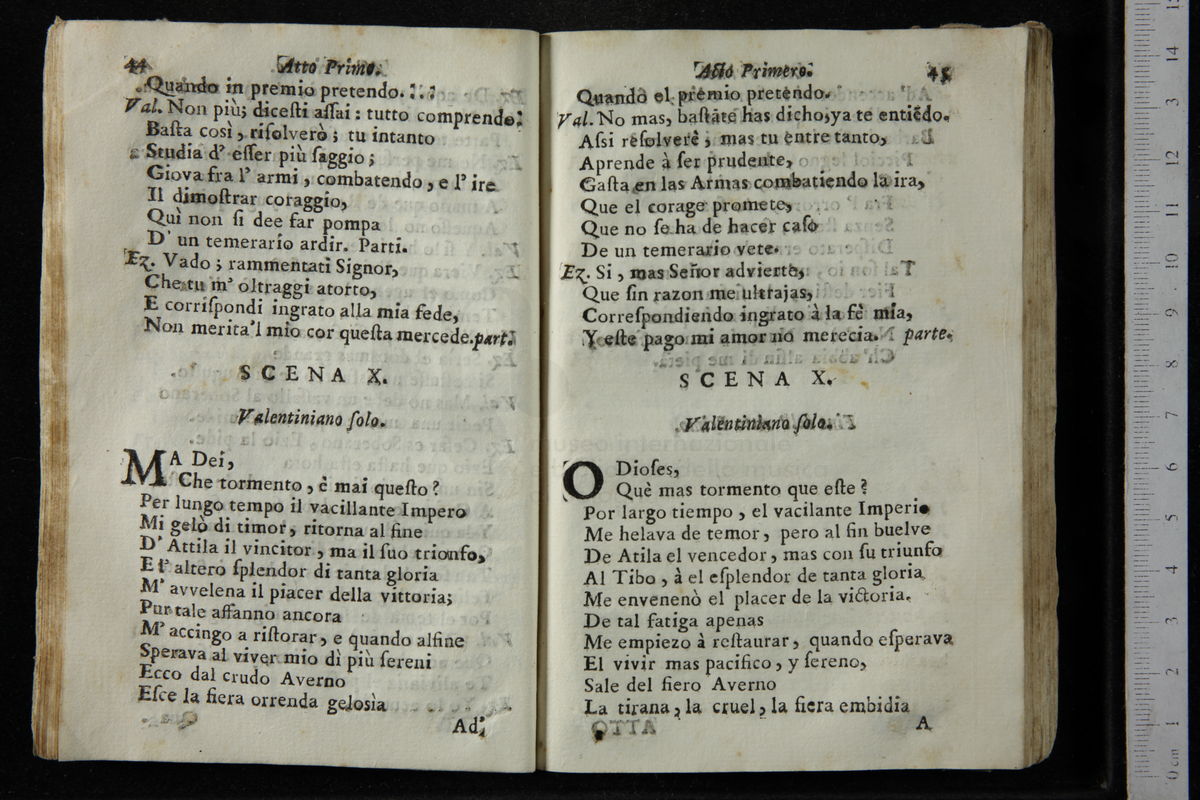 44 Atto Primo.
Quando in premio pretendo.
Val. Non più; dicesti assai: tutto comprendo:
Basta così, risolverò; tu intanto
Studia d' esser più saggio;
Giova fra l' armi, combatendo, e l' ire
Il dimostrar coraggio,
Quì non si dee far pompa
D' un temerario ardir. Parti.
Ez. Vado; rammentati Signor,
Che tu m' oltraggi atorto,
E corrispondi ingrato alla mia fede,
Non merita 'l mio cor questa mercede. part.
SCENA X.
Valentiniano solo.
MA Dei,
Che tormento, è mai questo?
Per lungo tempo il vacillante Impero
Mi gelò di timor, ritorna al fine
D' Attila il vincitor, ma il suo trionfo,
E l' altero splendor di tanta gloria
M' avvelena il piacer della vittoria;
Pur tale affanno ancora
M' accingo a ristorar, e quando alfine
Sperava al viver mio dì più sereni
Ecco dal crudo Averno
Esce la fiera orrenda gelosìa
Ad'
Acto Primero. 45
Quando el premio pretendo.
Val. No mas, bastãte has dicho, ya te entiẽdo.
Assi resolverê, mas tu entre tanto,
Aprende à ser prudente,
Gasta en las Armas combatiendo la ira,
Que el corage promete,
Que no se ha de hacer caso
De un temerario vete.
Ez. Si, mas Señor advierte,
Que sin razon me ultrajas,
Correspondiendo ingrato à la fè mia,
Y este pago mi amor no merecia. parte.
SCENA X.
Valentiniano solo.
O Dioses,
Què mas tormento que este?
Por largo tiempo, el vacilante Imperio
Me helava de temor, pero al fin buelve
De Atila el vencedor, mas con su triunfo
Al Tibo, à el esplendor de tanta gloria
Me envenenò el placer de la victoria.
De tal fatiga apenas
Me empiezo à restaurar, quando esperava
El vivir mas pacifico, y sereno,
Sale del fiero Averno
La tirana, la cruel, la fiera embidia
A